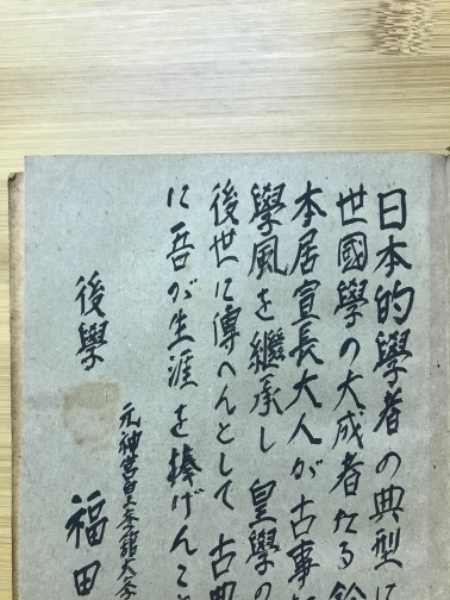 日本的學者の典型に
世國學の大成者たる鈴
本居宣長大人が古事
學風を繼承し 皇學の
後世に傳へんとして 古典
に吾が生涯を捧げんこと
元神宮皇學館大學
後學 福田